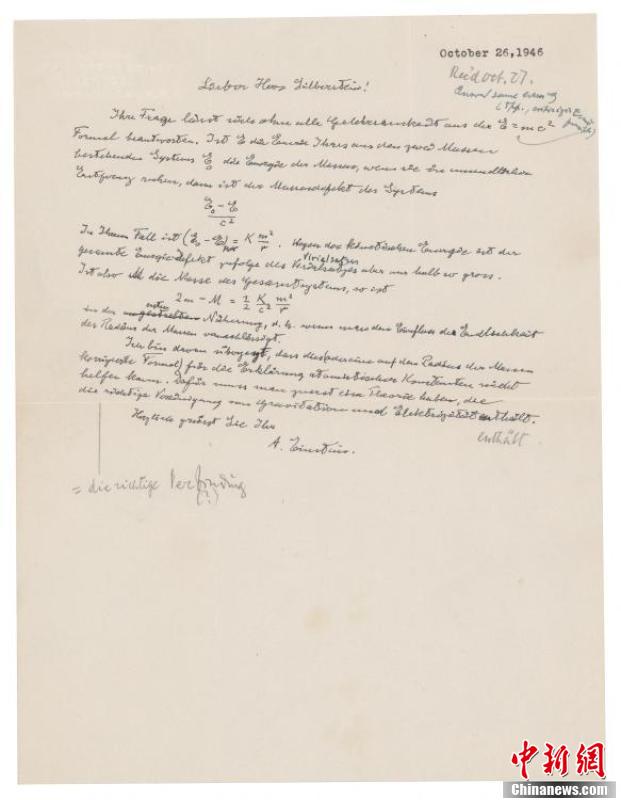 October 26, 1946
Rec'd Oct. 27.
Lieber Herr Silberstein!
Ihre Frage lässt sich ohne alle Gelehrsamkeit aus der E = mc²
Formel beantworten. Ist E die Energie Ihres aus den zwei Massen
bestehenden Systems E₀ die Energie der Massen, wenn sie in unendlicher
Entfernung ruhen, dann ist der Massendefekt des Systems
E₀ – E
c²
In Ihrem Fall ist (E₀ – E) = K m²/r . Wegen der kinetischen Energie ist der
Virialsatzes
gesamte Energie-Defekt zufolge des aber nur halb so gross.
Ist also M die Masse des Gesamtsystems, so ist
2m – M = 1/2 K/c² m²/r
in der Näherung, d. h. wenn man den Einfluss der Endlichkeit
des Radius der Massen vernachlässigt.
Ich bin davon überzeugt, dass die auf den Radius der Massen
Formel) für die Erklärung atomistischer Konstanten nicht
helfen kann. Dafür muss man zuerst eine Theorie haben, die
die richtige Vereinigung von Gravitation und Elektrizität enthält.
enthält
Herzlich grüsst Sie Ihr
A. Einstein.
= die richtige Verbindung
(?)
中新网
Chinanews.com